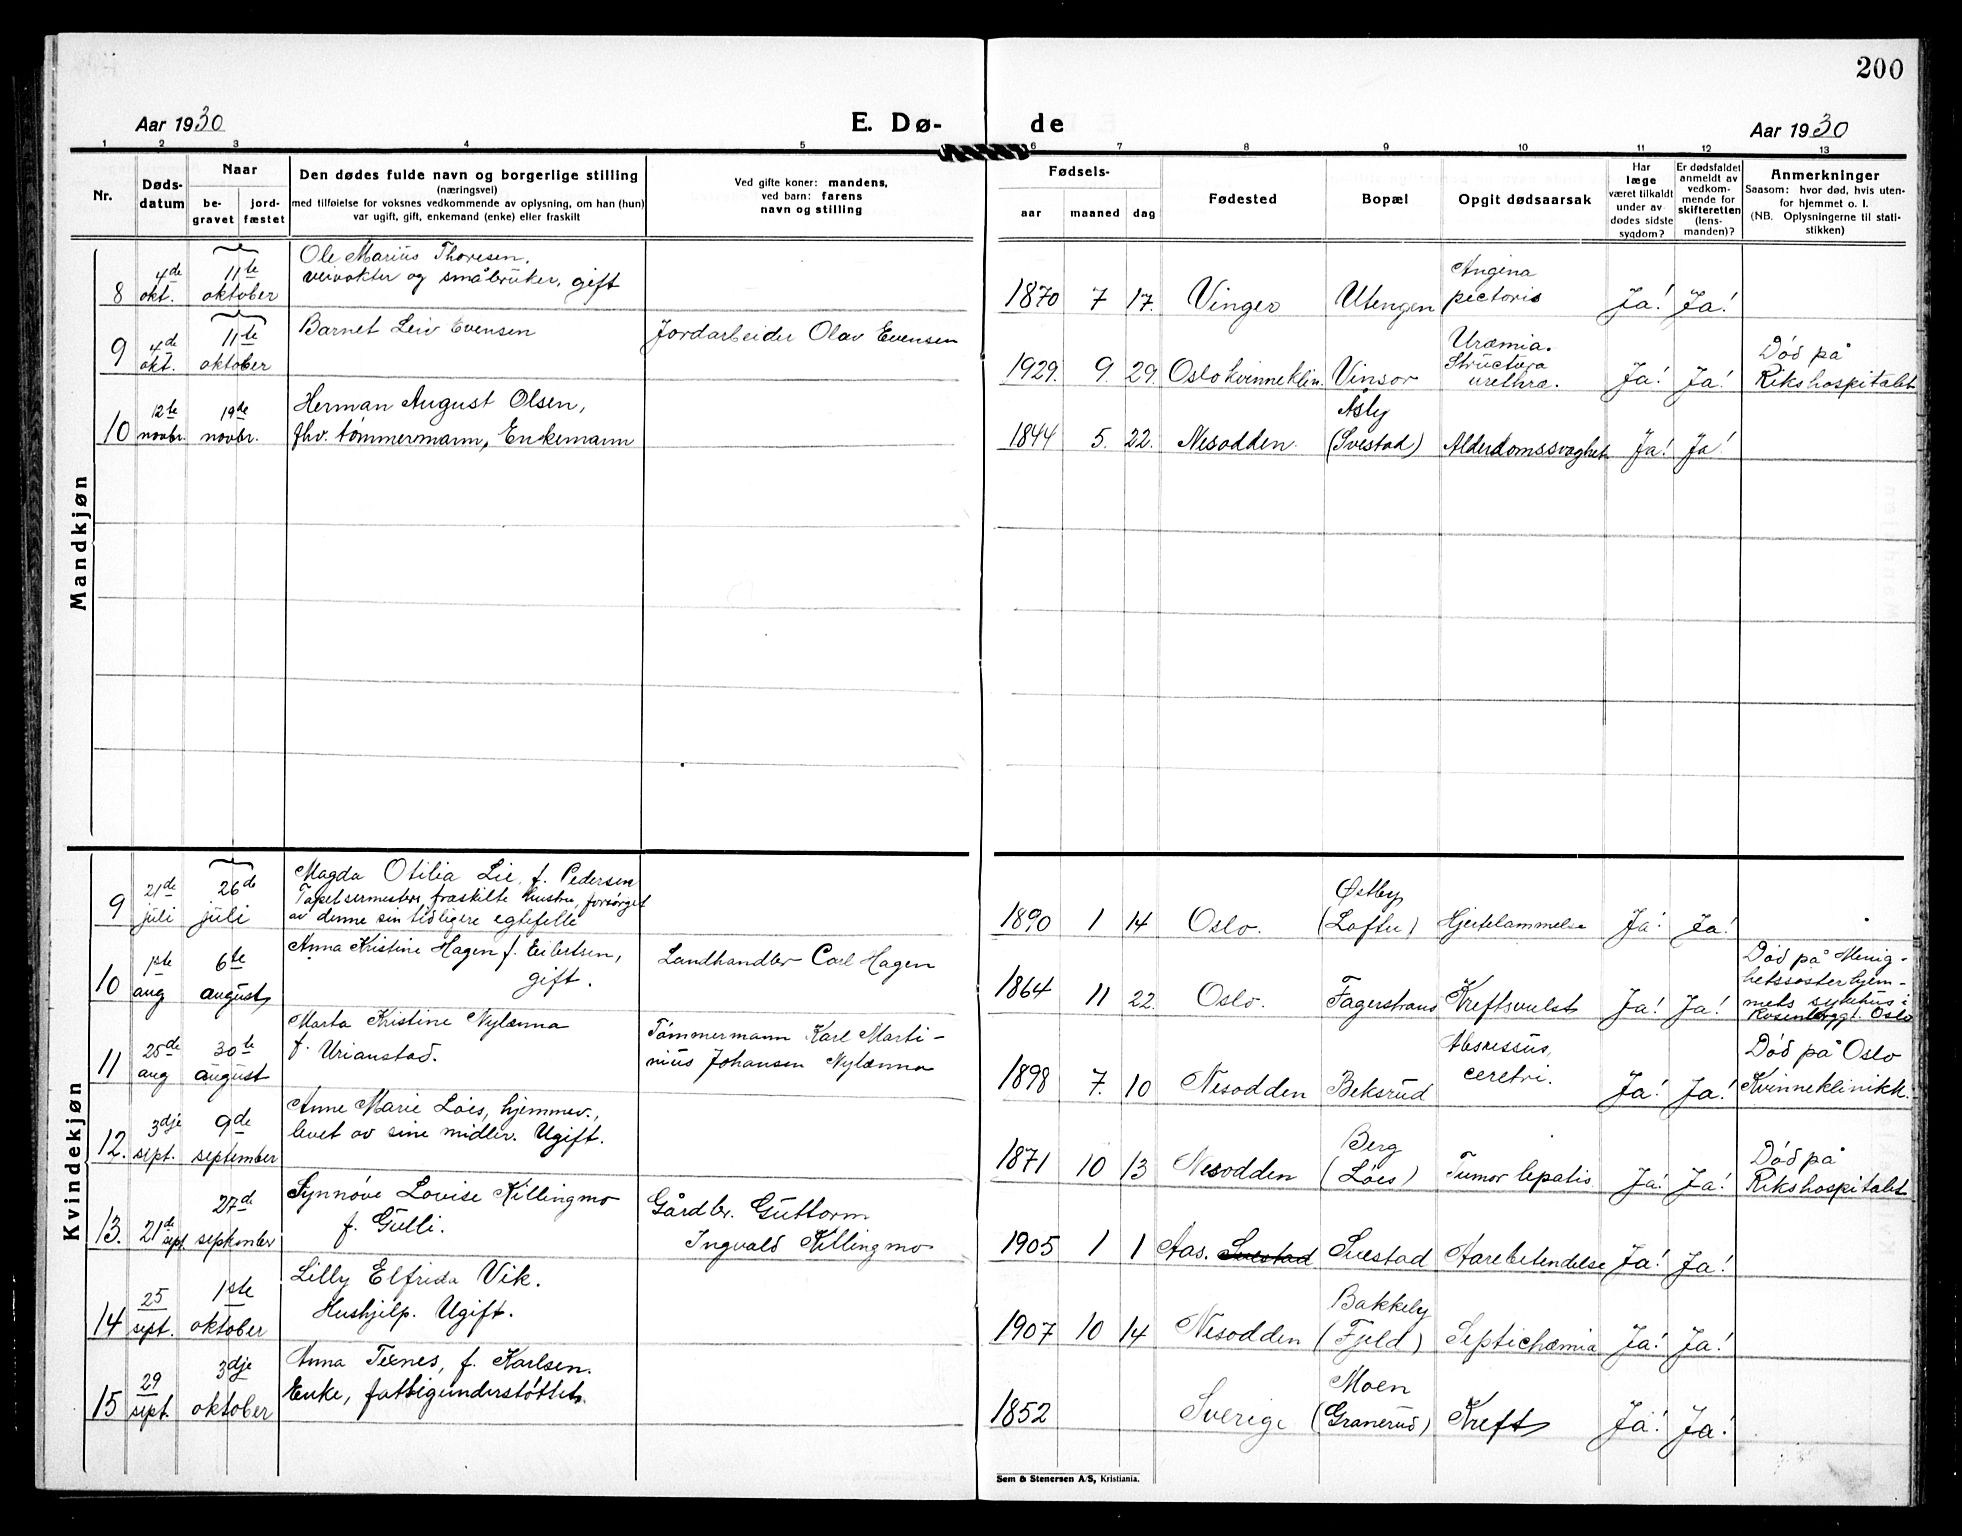 200
Aar 1930
E. Dø-
de
Aar 1930
1 2 3 4 5 6 7 8 9 10 11 12 13
Nr.
Døds-
datum
Naar
be-
gravet
jord-
fæstet
Den dødes fulde navn og borgerlige stilling
(næringsvei)
med tilføielse for voksnes vedkommende av oplysning, om han (hun)
var ugift, gift, enkemand (enke) eller fraskilt
Ved gifte koner: mandens,
ved barn: farens
navn og stilling
Fødsels-
aar maaned dag
Fødested
Bopæl
Opgit dødsaarsak
Har
læge
været tilkaldt
under av-
dødes sidste
sygdom?
Er dødsfaldet
anmeldt av
vedkom-
mende for
skifteretten
(lens-
manden)?
Anmerkninger
Saasom: hvor død, hvis uten-
for hjemmet o. l.
(NB. Oplysningerne til stati-
stikken)
Mandkjøn
8 4de okt. 11te oktober
Ole Marius Thoresen,
veivokter og småbruker, gift
1870 7 17. Vinger Utengen Angina
pectoris Ja! Ja!
9 4de okt. 11te oktober
Barnet Leiv Evensen
Jordarbeider Olav Evensen
1929. 9. 29. Oslo kvinneklin. Vinsor Uræmia.
Structura
urethra. Ja! Ja! Død på
Rikshospitalet
10 12te novbr. 19de novbr.
Herman August Olsen,
fhv. tømmermann, Enkemann
1844 5. 22. Nesodden. Åsly
(Svestad) Alderdomssvaghet Ja! Ja!
Kvindekjøn
9 21de juli 26de juli
Magda Otilia Lie, f. Pedersen
Tapetsermesters fraskilte hustru, forsørget
av denne sin tidligere egtefelle
1890 1 14 Oslo. Østby
(Loftu) Hjertelammelse Ja! Ja!
10 1ste aug 6te august
Anna Kristine Hagen f. Eilertsen,
gift.
Landhandler Carl Hagen
1864 11 22. Oslo. Fagerstrand Kreftsvulst Ja! Ja! Død på Menig-
hetssøsterhjem-
mets sykehus i
Rosenborggt. Oslo
11 25de aug 30te august
Marta Kristine Nylænna
f. Urianstad.
Tømmermann Karl Marti-
nius Johansen Nylænna
1898 7. 10 Nesodden Beksrud Abscessus,
cerebri. Ja! Ja! Død på Oslo
Kvinneklinikk.
12. 3dje sept. 9de september
Anne Marie Løes, hjemmev.,
levet av sine midler. Ugift.
1871 10 13 Nesodden Berg
(Løes) Tumor hepatis Ja! Ja! Død på
Rikshospitalet
13. 21de sept. 27d september
Synnøve Lovise Killingmo
f. Gulli.
Gårdbr. Guttorm
Ingvald Killingmo
1905 1 1 Aas. Svestad Svestad Aarebetendelse Ja! Ja!
14 25 sept. 1ste oktober
Lilly Elfrida Vik.
Hushjelp. Ugift.
1907 10 14 Nesodden Bakkely
(Fjeld) Septichæmia Ja! Ja!
15 29 sept. 3dje oktober
Anna Texnes, f. Karlsen.
Enke, fattigunderstøttet.
1852 Sverige Moen
(Granerud) Kreft Ja! Ja!
Sem & Stenersen A/S, Kristiania.